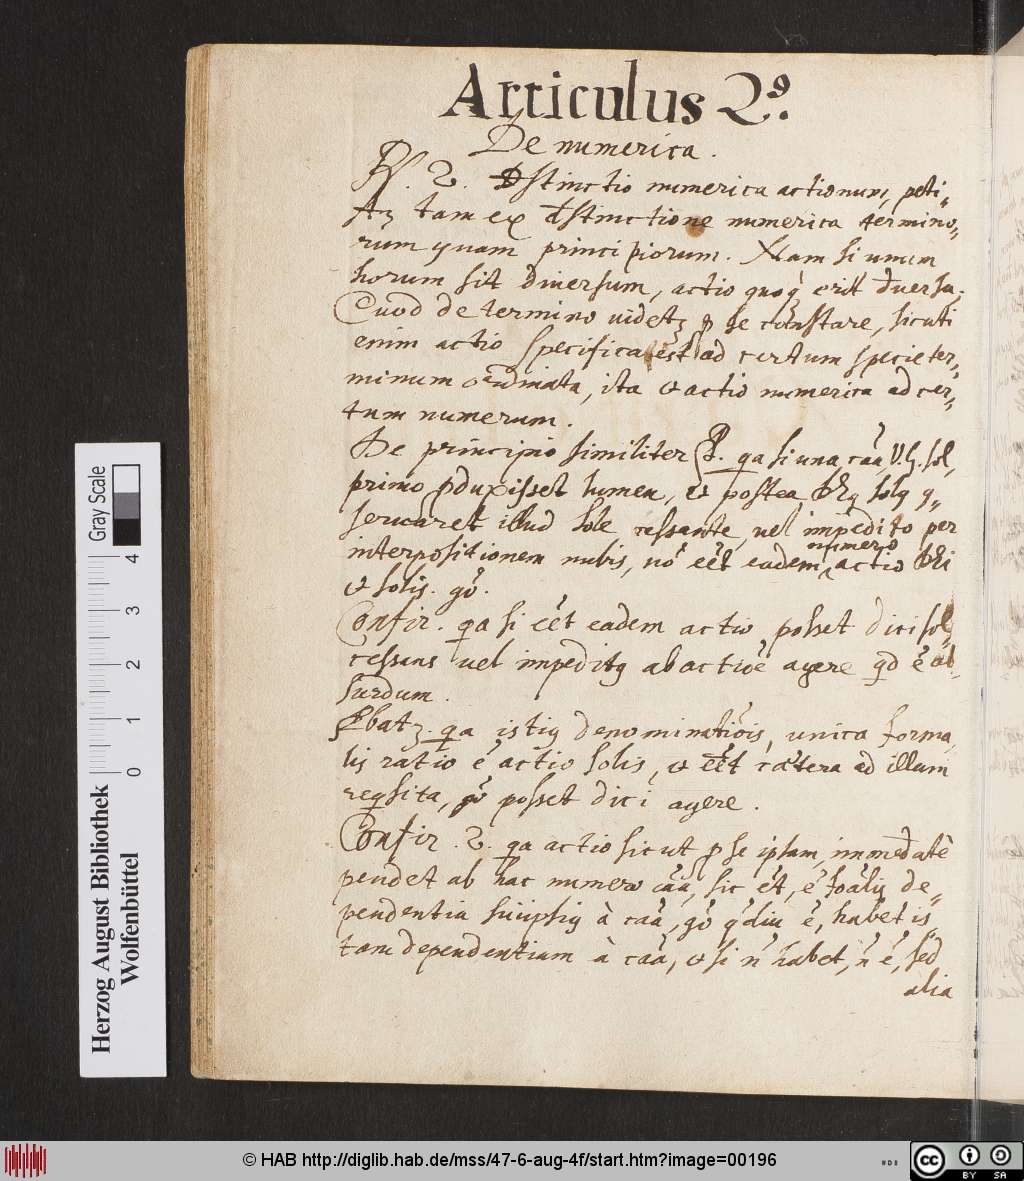 Articulus 2⁹.
De numerica.
Rs. 2. Distinctio numerica actionum, peti-
tʒ tam ex distinctione numerica termino-
rum quam principiorum. Nam si unum
horum sit diuersum, actio quoq; erit diuersa.
Quod de termino uidetʒ ꝑ se constare, sicuti
enim actio specifica est ad certum specie ter-
minum ordinata, ita et actio numerica ad cer-
tum numerum.
De principio similiter Pb. qa si una caã V.G. sol
primo ꝓduxisset lumen, et postea solꝰ
seruaret illud sole cessante uel impedito per
interpositionem nubis, nõ eẽt eadem numero actio
et solis. gõ.
Confir. qa si eẽt eadem actio posset dici sol
cessans uel impeditꝰ ab actiõe agere qd ẽ ab-
surdum.
Pbatʒ. qa istiꝰ denominatiõis, unica forma
lis ratio ẽ actio solis, et eẽt cætera ad illam
reqsita, gõ posset dici agere.
Confir. 2. qa actio sicut ꝑ se ipsam immediatè
pendet ab hac numero caã, sic ẽt, ẽ foãlis de-
pendentia suiipsiꝰ à caã, gõ qdiu ẽ, habet is
tam dependentiam à caã, et si ñ habet, ñ ẽ, sed
alia
Gray Scale
4
3
2
1
0
Herzog August Bibliothek
Wolfenbüttel
© HAB http://diglib.hab.de/mss/47-6-aug-4f/start.htm?image=00196
cc BY SA